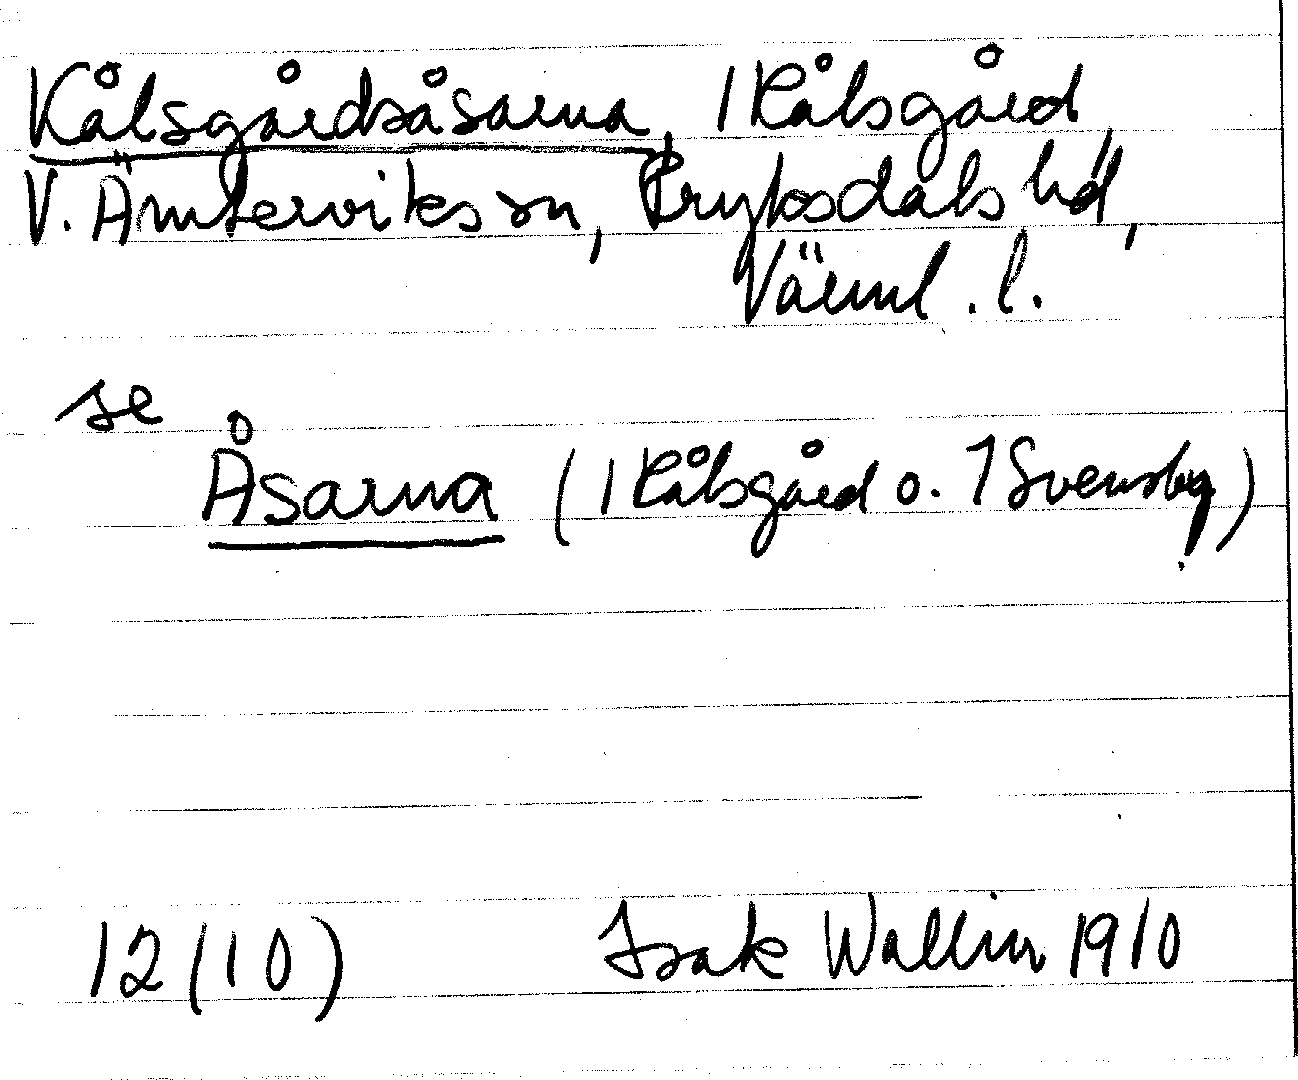 Kålsgårdsåsarna, 1 Kålsgård,
V. Ämterviks sn, Fryksdals hd,
Värml. l.
se
Åsarna (1 Kålsgård o. 1 Svensby)
12 (10) Isak Wallin 1910